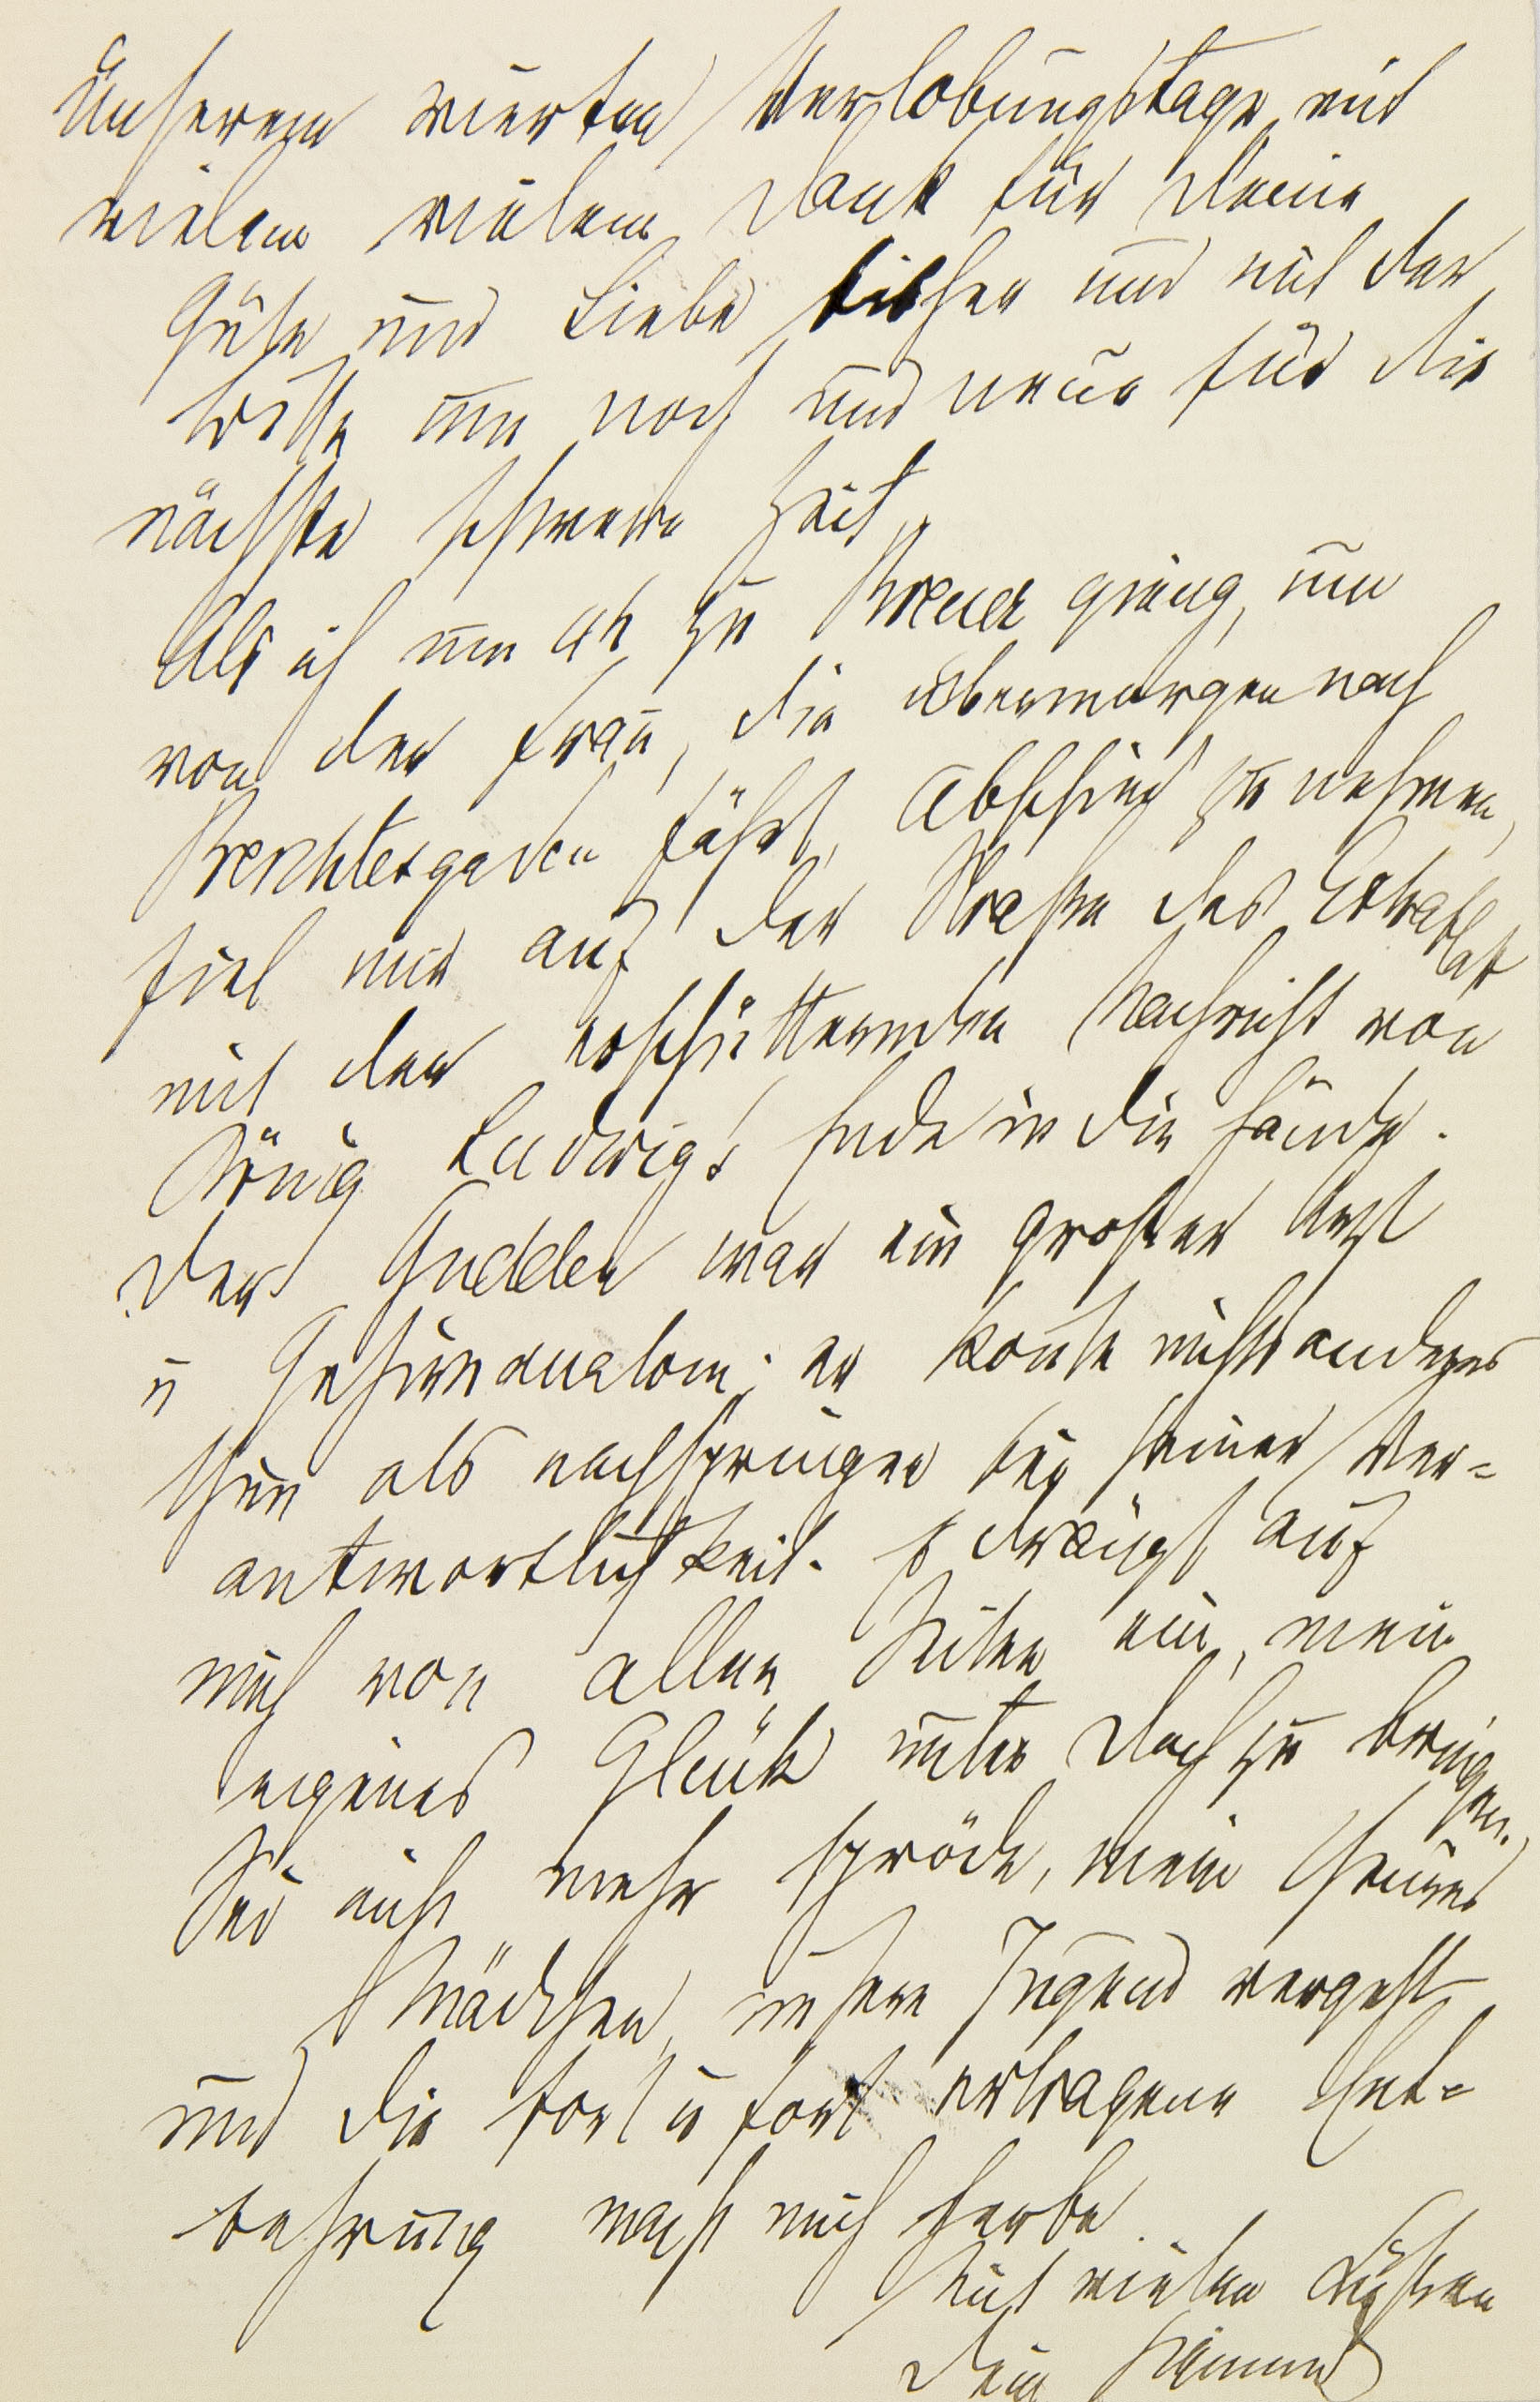 Unserem vierten Verlobungstage mit
vielem vielem Dank für Deine
Güte und Liebe bisher und mit der
Bitte um noch und neue für die
nächste schwere Zeit.
Als ich nun zu Breuer gieng, um
von der Frau, die übermorgen nach
Berchtesgaden fährt, Abschied zu nehmen,
fiel mir auf der Straße das Extrablatt
mit der erschütternden Nachricht von
König Ludwigs Ende in die Hände.
Der Gudden war ein großer Arzt
u Gehirnanatom; er konte nichts anderes
thun als nachspringen bei seiner Ver-
antwortlichkeit. Es drängt auf
mich von allen Seiten ein, mein
eigenes Glück unter Dach zu bringen.
Sei nicht mehr spröde, mein theures
Mädchen, unsere Jugend vergeht
und die fort u fort ertragene Ent-
behrung macht mich herbe.
Mit vielen Küßen
Dein Sigmund